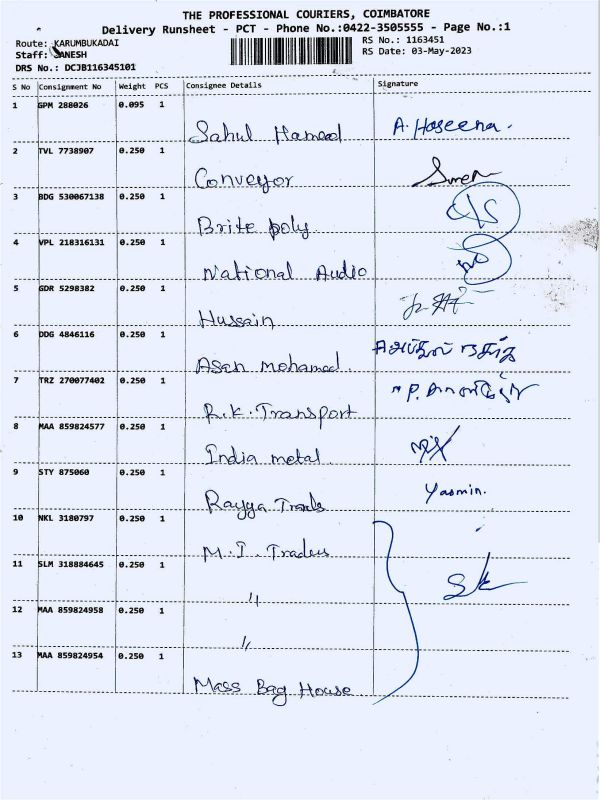 THE PROFESSIONAL COURIERS, COIMBATORE
Delivery Runsheet - PCT - Phone No.:0422-3505555 - Page No.:1
Route: KARUMBUKADAI
RS No.: 1163451
Staff: GANESH
RS Date: 03-May-2023
DRS No.: DCJB116345101
S No Consignment No Weight PCS Consignee Details Signature
1 GPM 288026 0.095 1
Sahul Hameed A. Haseena.
2 TVL 7738907 0.250 1
Conveyor
3 BDG 530067138 0.250 1
Brite poly
4 VPL 218316131 0.250 1
National Audio
5 GDR 5298382 0.250 1
Hussain
6 DDG 4846116 0.250 1
Asan mohamed.
7 TRZ 270077402 0.250 1
R.K. Transport
8 MAA 859824577 0.250 1
India metal.
9 STY 875060 0.250 1
Rayya Trads Yasmin.
10 NKL 3180797 0.250 1
M.I. Traders
11 SLM 318884645 0.250 1
"
12 MAA 859824958 0.250 1
"
13 MAA 859824954 0.250 1
Mass Bag House